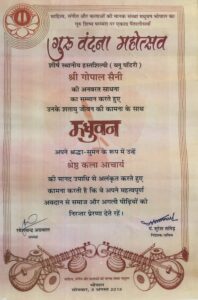 साहित्य, संगीत और कलाओं की मानक संस्था मधुवन भोपाल का
गुरु वंदना महोत्सव
शीर्ष स्थानीय हस्तशिल्पी (ब्लू पॉटरी)
श्री गोपाल सैनी
की अनवरत साधना
का सम्मान करते हुए
उनके शतायु जीवन की कामना के साथ
मधुवन
अपने श्रद्धा-सुमन के रूप में उन्हें
श्रेष्ठ कला आचार्य
की मानद उपाधि से अलंकृत करते हुए
कामना करती है कि वे अपने महत्वपूर्ण
अवदान से समाज और अगली पीढ़ियों को
निरन्तर प्रेरणा देते रहें।
अध्यक्ष
पं. सुरेश तांतेड़
भोपाल